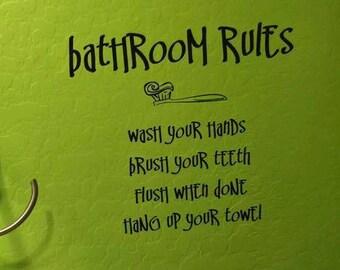 baTHROOM RULES
WASH YOUR HANDS
bRUSH YOUR TEETH
FLUSH WHEN DONE
HANG UP YOUR TOWEL